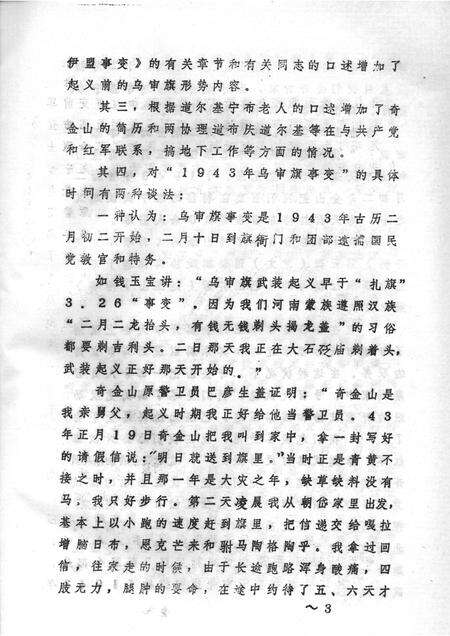 伊盟事变》的有关章节和有关同志的口述增加了
起义前的乌审旗形势内容。
其三，根据道尔基宁布老人的口述增加了奇
金山的简历和两协理道布庆道尔基等在与共产党
和红军联系，搞地下工作等方面的情况。
其四，对“1943年乌审旗事变”的具体
时间有两种谈法：
一种认为：乌审旗事变是1943年古历二
月初二开始，二月十日到旗衙门和团部逮捕国民
党教官和特务。
如钱玉宝讲：“乌审旗武装起义早于“扎旗”
3.26“事变”，因为我们河南蒙族遵照汉族
“二月二龙抬头，有钱无钱剃头揭龙盖”的习俗
都要剃吉利头。二日那天我正在大石砭庙剃着头，
武装起义正好那天开始的。”
奇金山原警卫员巴彦生盖证明：“奇金山是
我亲舅父，起义时期我正好给他当警卫员。43
年正月19日奇金山把我叫到家中，拿一封写好
的请假信说：“明日就送到旗里。”当时正是青黄不
接之时，并且那一年是大灾之年，缺草缺料没有
马，我只好步行。第二天凌晨我从朝岱家里出发，
基本上以小跑的速度赶到旗里，把信递交给嘎拉
增腑日布，恩克芒来和驸马陶格陶乎。我拿过回
信，往家走的时候，由于长途跑路浑身酸痛，四
肢无力，腿肿的要命，在途中约待了五、六天才
～3